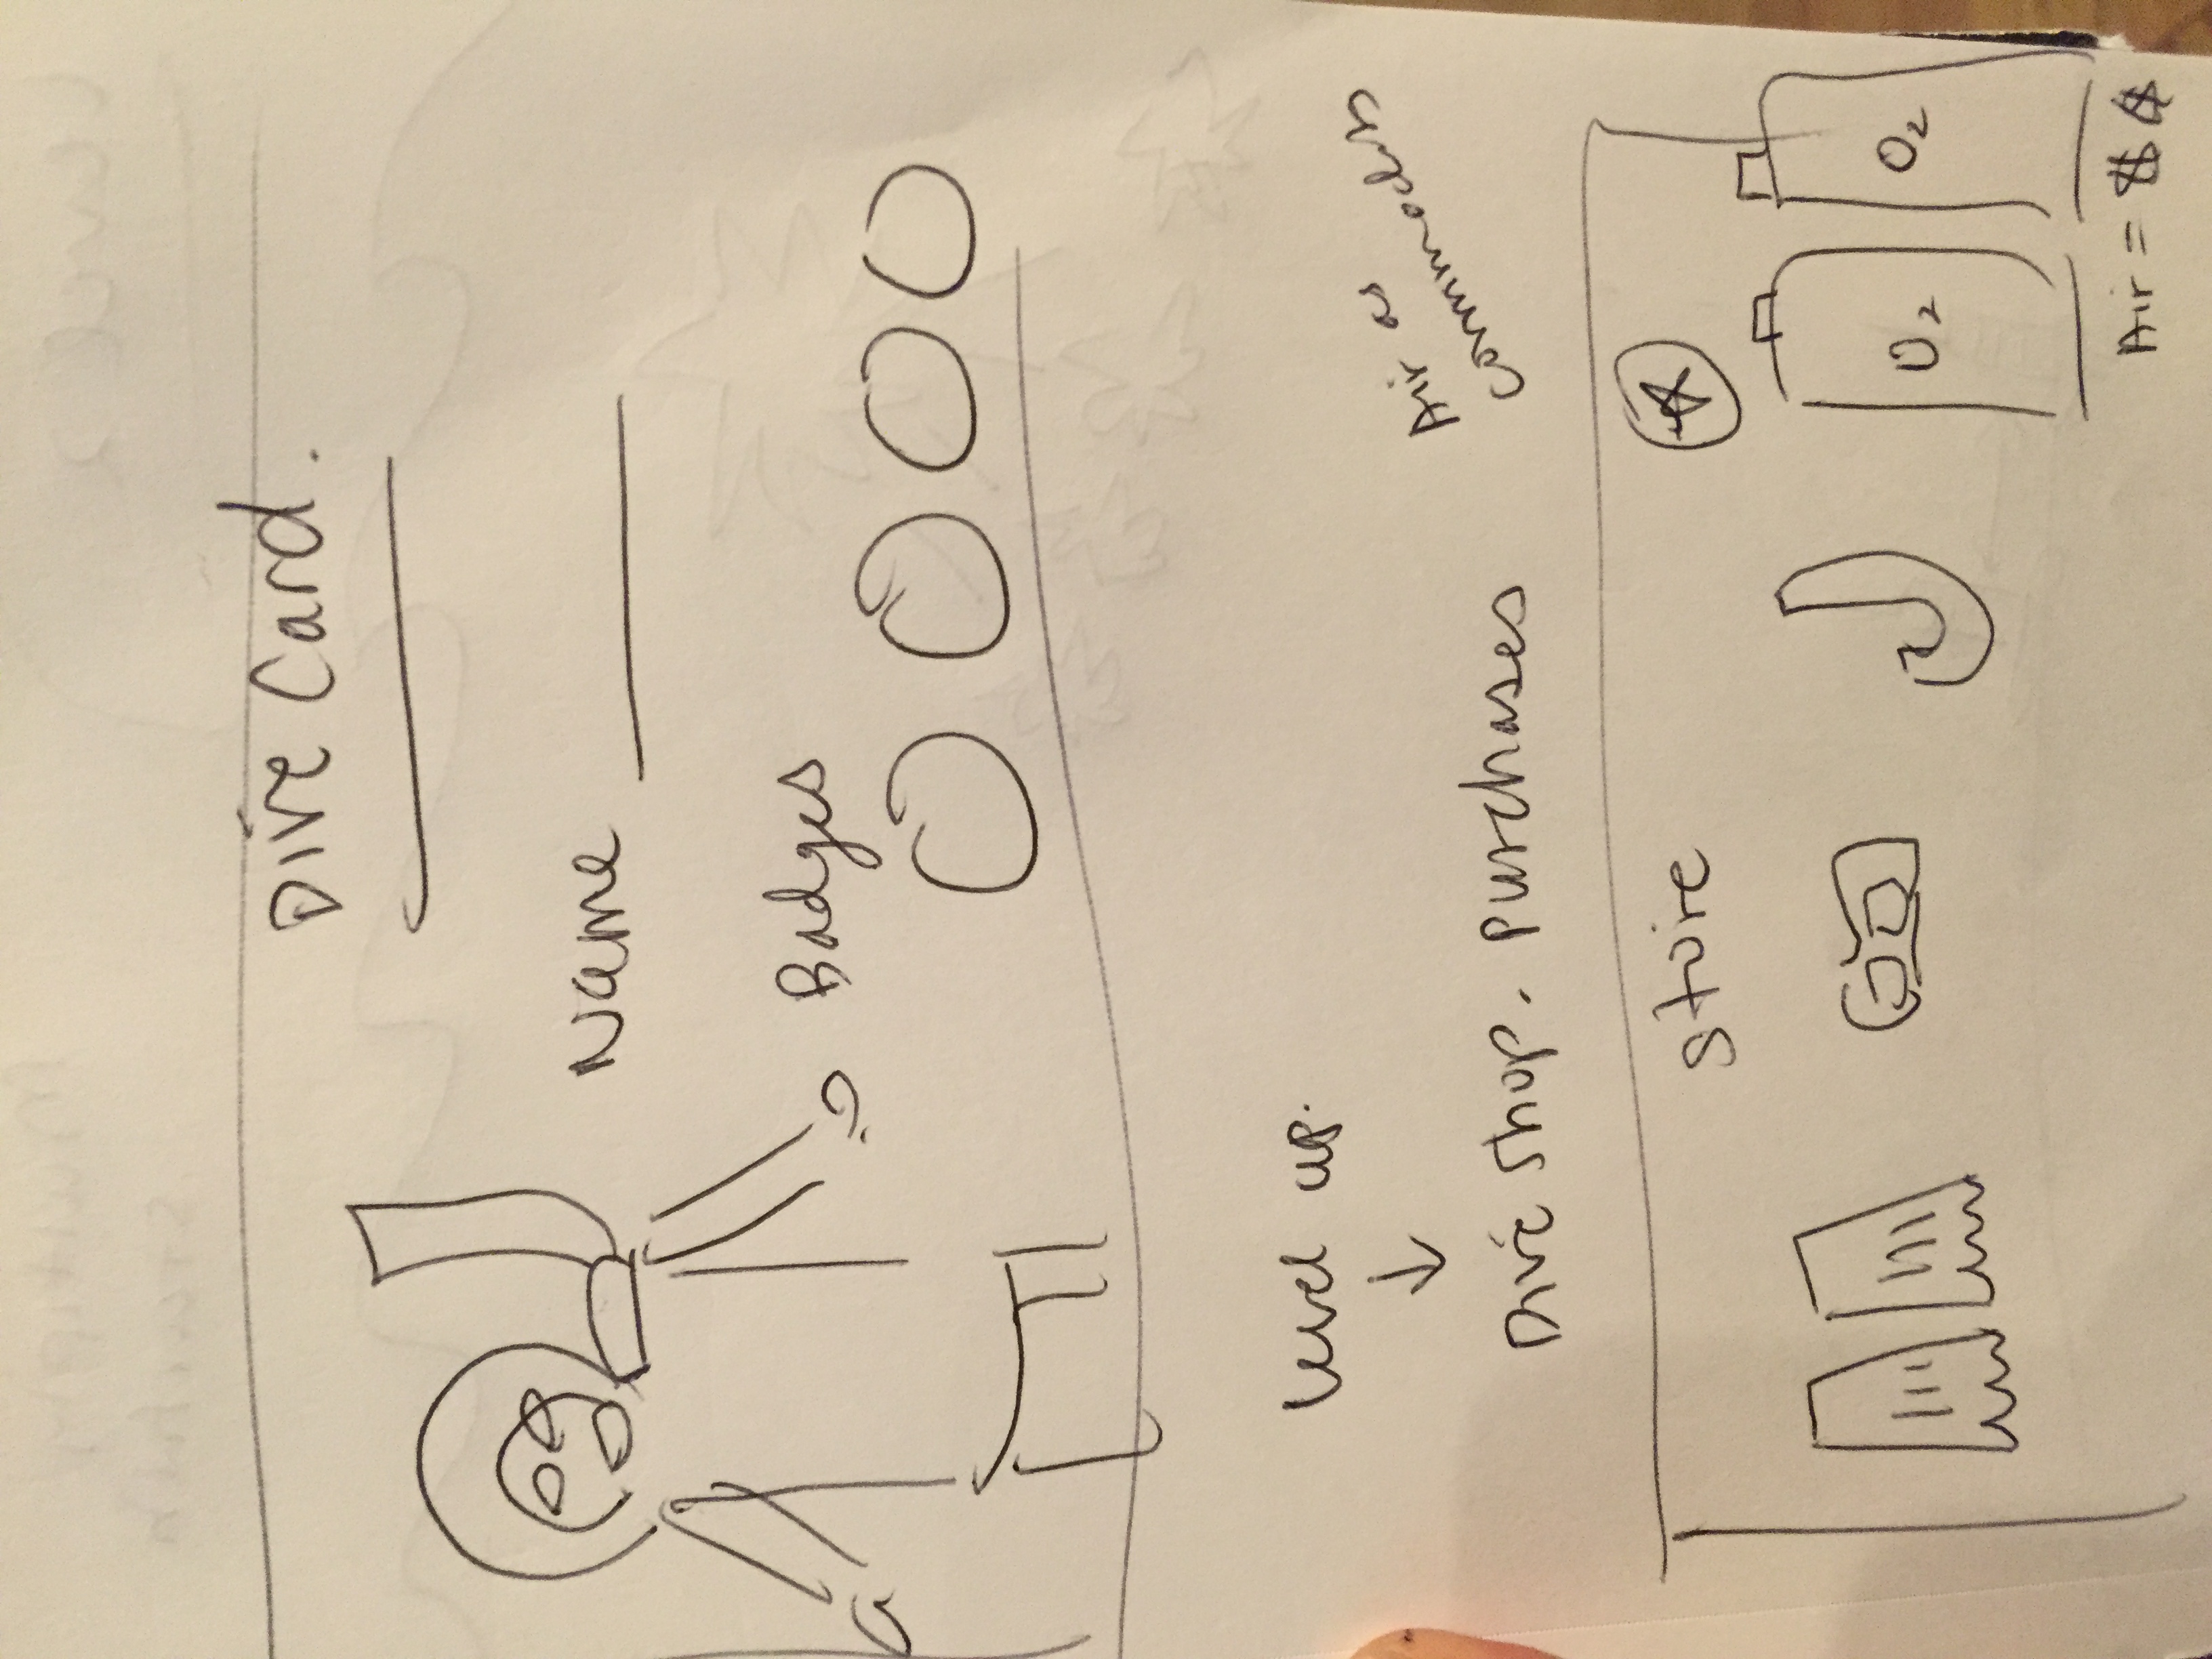 Dive Card.
Name
Badges
level up.
↓
Dive shop. Purchases
Air as
commodity
store
O₂
O₂
Air = $ $